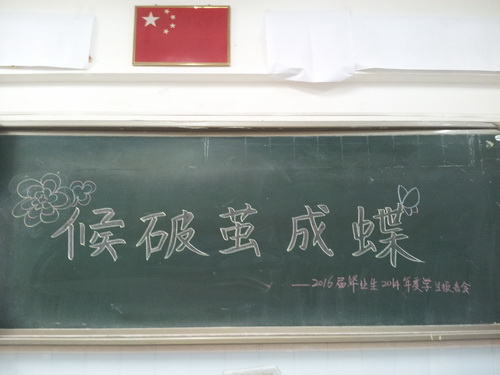 候破茧成蝶
——2016届毕业生2014年度学生联者会